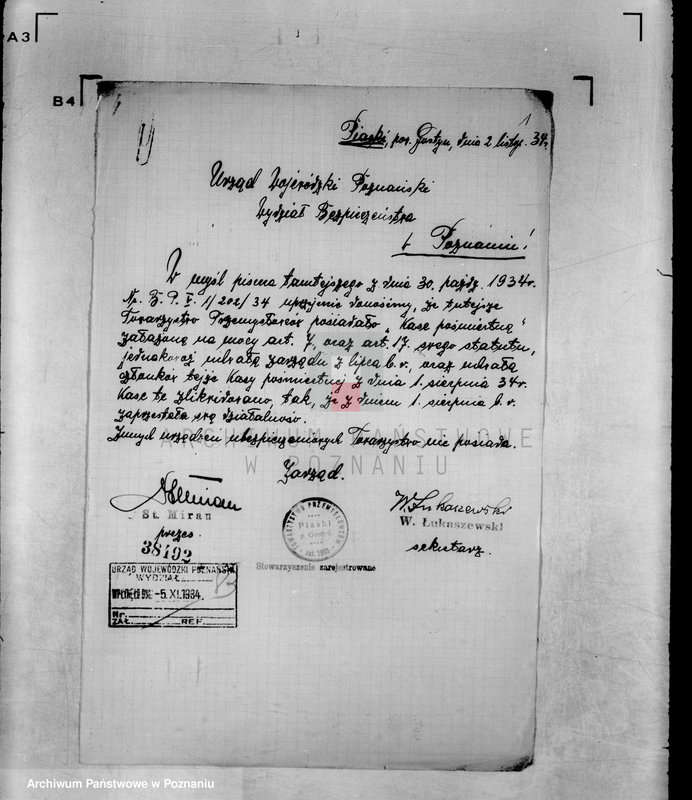 A3
B4
1
Piaski, pow. Gostyń, dnia 2 listop. 34r.
Urząd Wojewódzki Poznański
Wydział Bezpieczeństwa
w Poznaniu!
W myśl pisma tamtejszego z dnia 30. paźdz. 1934r.
Nr. B. P. V. 1/202/34 uprzejmie donosimy, że tutejsze
Towarzystwo Przemysłowców posiadało "Kasę pośmiertną"
założoną na mocy art. 7, oraz art. 17. swego statutu,
jednakowoż uchwałą zarządu z lipca b. r., oraz uchwałą
członków tejże Kasy pośmiertnej z dnia 1. sierpnia 34r.
Kasę tę zlikwidowano, tak, że z dniem 1. sierpnia b. r.
zaprzestała swą działalność.
Innych urządzeń ubezpieczeniowych Towarzystwo nie posiada.
ARCHIWUM PAŃSTWOWE
W POZNANIU
Zarząd.
St. Miran
prezes.
W. Łukaszewski
W. Łukaszewski
sekretarz.
TOWARZYSTWO PRZEMYSŁOWCÓW
Piaski
p. Gostyń
zał. 1903
Stowarzyszenie zarejestrowane
38192
URZĄD WOJEWÓDZKI POZNAŃSKI
WYDZIAŁ
WPŁYNĘŁO DNIA -5. XI. 1934.
Nr.
ZAŁ. REF.
B
Archiwum Państwowe w Poznaniu